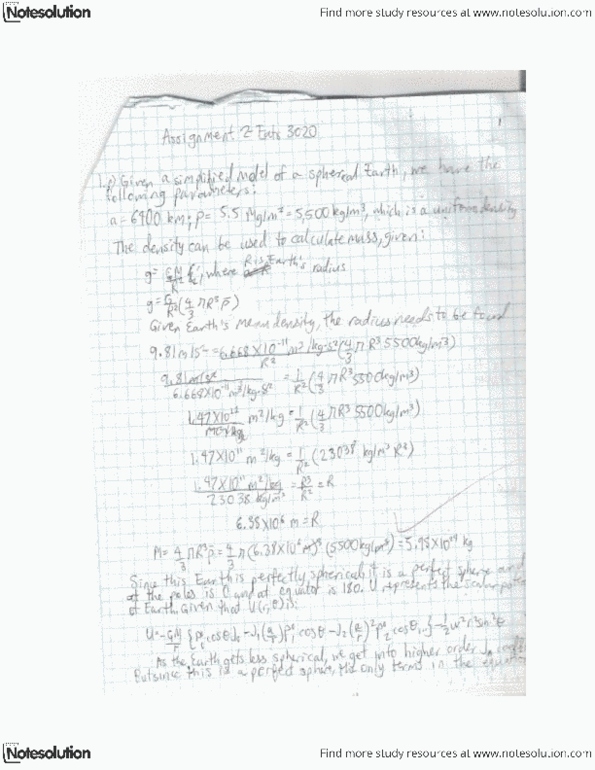 Notesolution
Find more study resources at www.notesolution.com
1
Assignment 2 Eats 3020
Given a simplified model of a spherical Earth, we have the
following parameters:
a= 6400 km; ρ= 5.5 Mg/m³=5,500kg/m³, which is a uniform density
The density can be used to calculate mass, given:
g= , where R is Earth's radius
g= G/R² (4/3 πR³ ρ̄)
Given Earth's mean density, the radius needs to be found
9.81m/s² = 6.668X10⁻¹¹m³/kg·s²(4/3 π R³ 5500kg/m³) / R²
9.81m/s² / 6.668X10⁻¹¹m³/kg·s² = 1/R² (4/3 πR³ 5500kg/m³)
1.47X10¹¹ m²/kg = 1/R² (4/3 πR³ 5500kg/m³)
1.47X10¹¹ m²/kg = 1/R² (23038 kg/m³ R³)
1.47X10¹¹ m²/kg / 23038 kg/m³ = R³/R² = R
6.38X10⁶ m = R
M= 4/3 πR³ρ̄ = 4/3 π(6.38X10⁶ m)³(5500kg/m³) = 5.98X10²⁴ kg
Since this Earth is perfectly spherical, it is a perfect sphere and
at the poles is 0 and at equator is 180. U represents the scalar
of Earth. Given that U(r,θ) is:
U=-GM/r {P₀ cosθJ₀ -J₁(a/r)P₁ cosθ -J₂(a/r)²P₂ cosθ...} -1/2 ω²r²sin²θ
As the Earth gets less spherical, we get into higher order Jₙ
But since this is a perfect sphere, the only terms in the
Notesolution
Find more study resources at www.notesolution.com